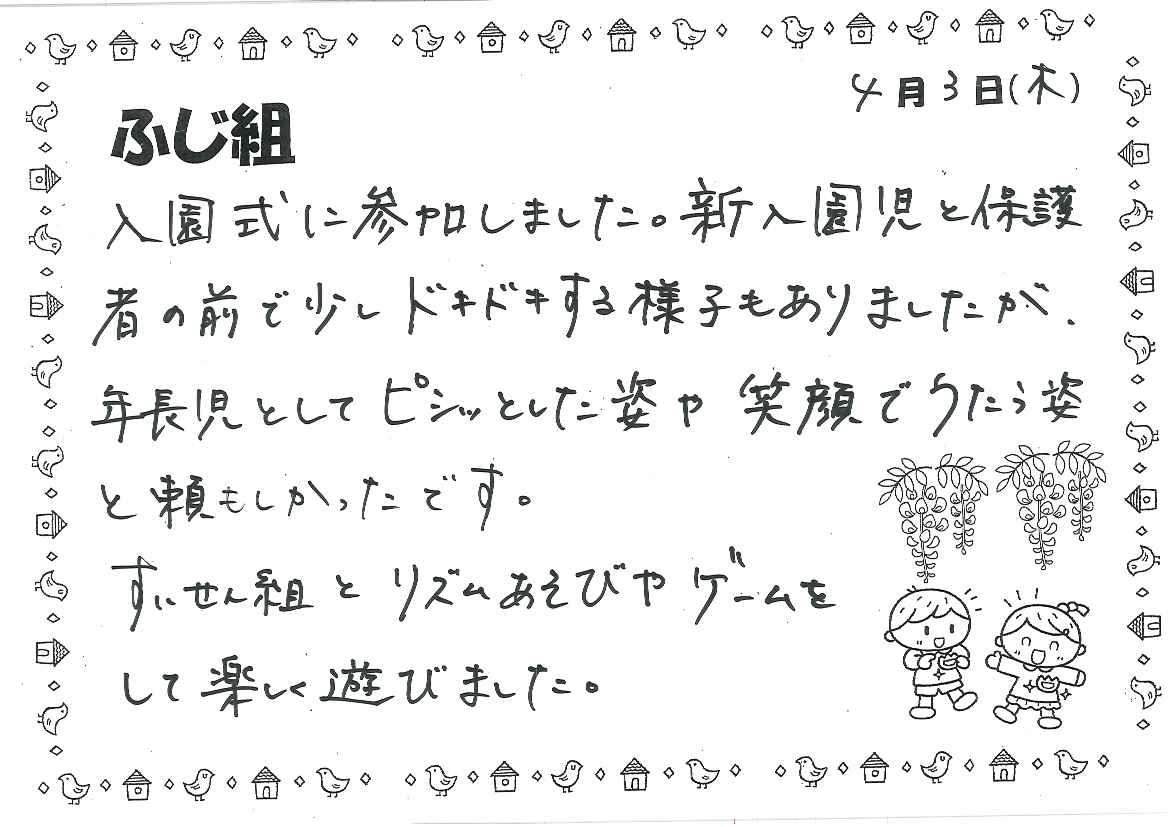 4月3日(木)
ふじ組
入園式に参加しました。新入園児と保護
者の前で少しドキドキする様子もありましたが、
年長児としてピシッとした姿や笑顔でうたう姿
と頼もしかったです。
すいせん組とリズムあそびやゲームを
して楽しく遊びました。